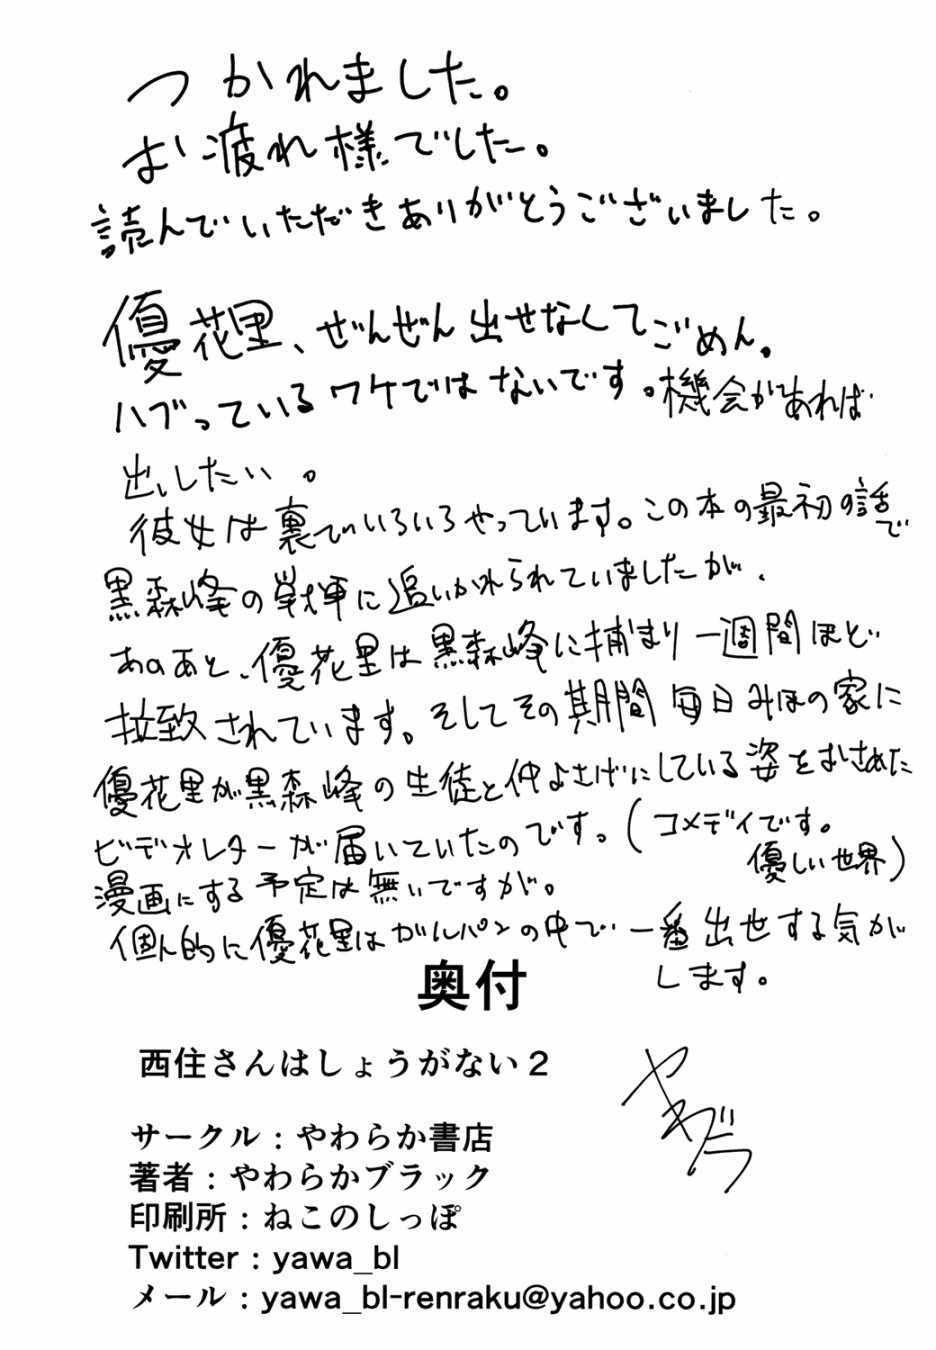 つかれました。
お疲れ様でした。
読んでいただきありがとうございました。
優花里、ぜんぜん出せなくてごめん。
ハブっているワケではないです。機会があれば
出したい。
彼女は裏でいろいろやっています。この本の最初の話で
黒森峰の戦車に追いかけられていましたが、
あのあと、優花里は黒森峰に捕まり一週間ほど
拉致されています。そしてその期間毎日みほの家に
優花里が黒森峰の生徒と仲よさげにしている姿をおさめた
ビデオレターが届いていたのです。(コメディです。
優しい世界)
漫画にする予定は無いですが。
個人的に優花里はガルパンの中で一番出世する気が
します。
奥付
西住さんはしょうがない2
やわブラ
サークル：やわらか書店
著者：やわらかブラック
印刷所：ねこのしっぽ
Twitter：yawa_bl
メール：yawa_bl-renraku@yahoo.co.jp